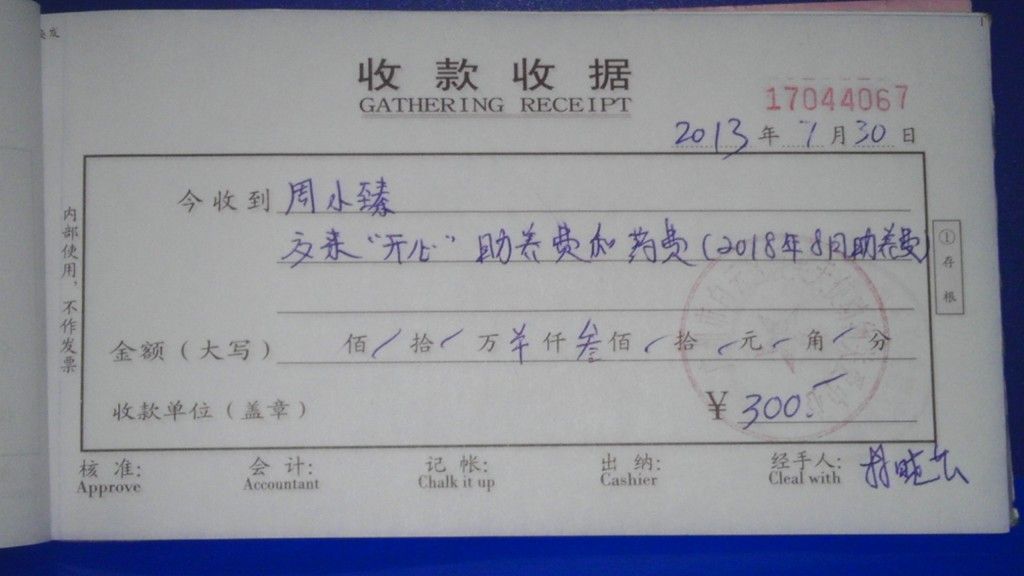 收款收据
GATHERING RECEIPT
17044067
2013年7月30日
今收到周小臻
交来“开心”助养费和药费(2018年8月助养费)
佰/拾/万羊仟叁佰/拾/元/角/分
金额(大写)
收款单位(盖章)
¥300.
核准: 会计: 记帐: 出纳: 经手人:
Approve Accountant Chalk it up Cashier Cleal with
内部使用,不作发票
①存根